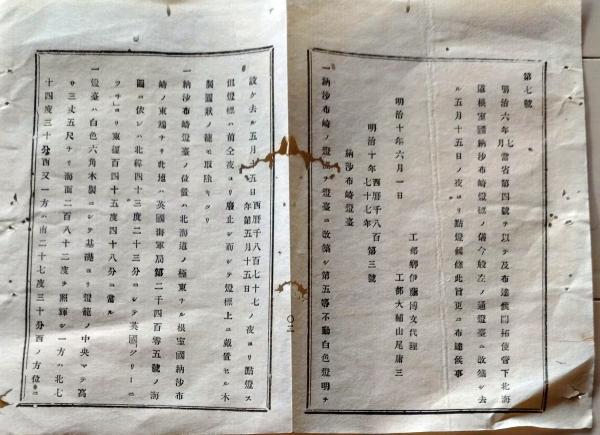 第七號
明治六年七月當省第四號ヲ以テ及布達候開拓使管下北海
道根室國納沙布崎燈標ノ儀今般左ノ通燈臺ニ改築シ去
ル五月十五日ノ夜ヨリ點燈候條此旨更ニ布達候事
明治十年六月一日
工部卿伊藤博文代理
工部大輔山尾庸三
明治十年
西曆千八百
七十七年
第三號
納沙布崎燈臺
一納沙布崎ノ燈標ヲ燈臺ニ改築シ第五等不動白色燈明ヲ
設ケ去ル五月十五日
西曆千八百七十七
年第五月十五日
ノ夜ヨリ點燈ス
但燈標ハ前仝夜ヨリ廢止シ而シテ燈標上ニ戴置セル木
製圓狀ノ籠モ取除キタリ
一納沙布崎燈臺ノ位置ハ北海道ノ極東ナル根室國納沙布
崎ノ東端ナリ此地ハ英國海軍局第二千四百零五號ノ海
圖ニ依レハ北緯四十三度二十三分ニシテ英國グリーニ
ヨリ東經百四十五度四十八分ニ當ル
一燈臺ハ白色六角木製ニシテ基礎ヨリ燈籠ノ中央マテ高
サ三丈五尺ナリ海面二百八十二度ヲ照輝シ一方ハ北七
十四度三十分西又一方ハ南二十七度三十分西ノ方位ニ
〇二